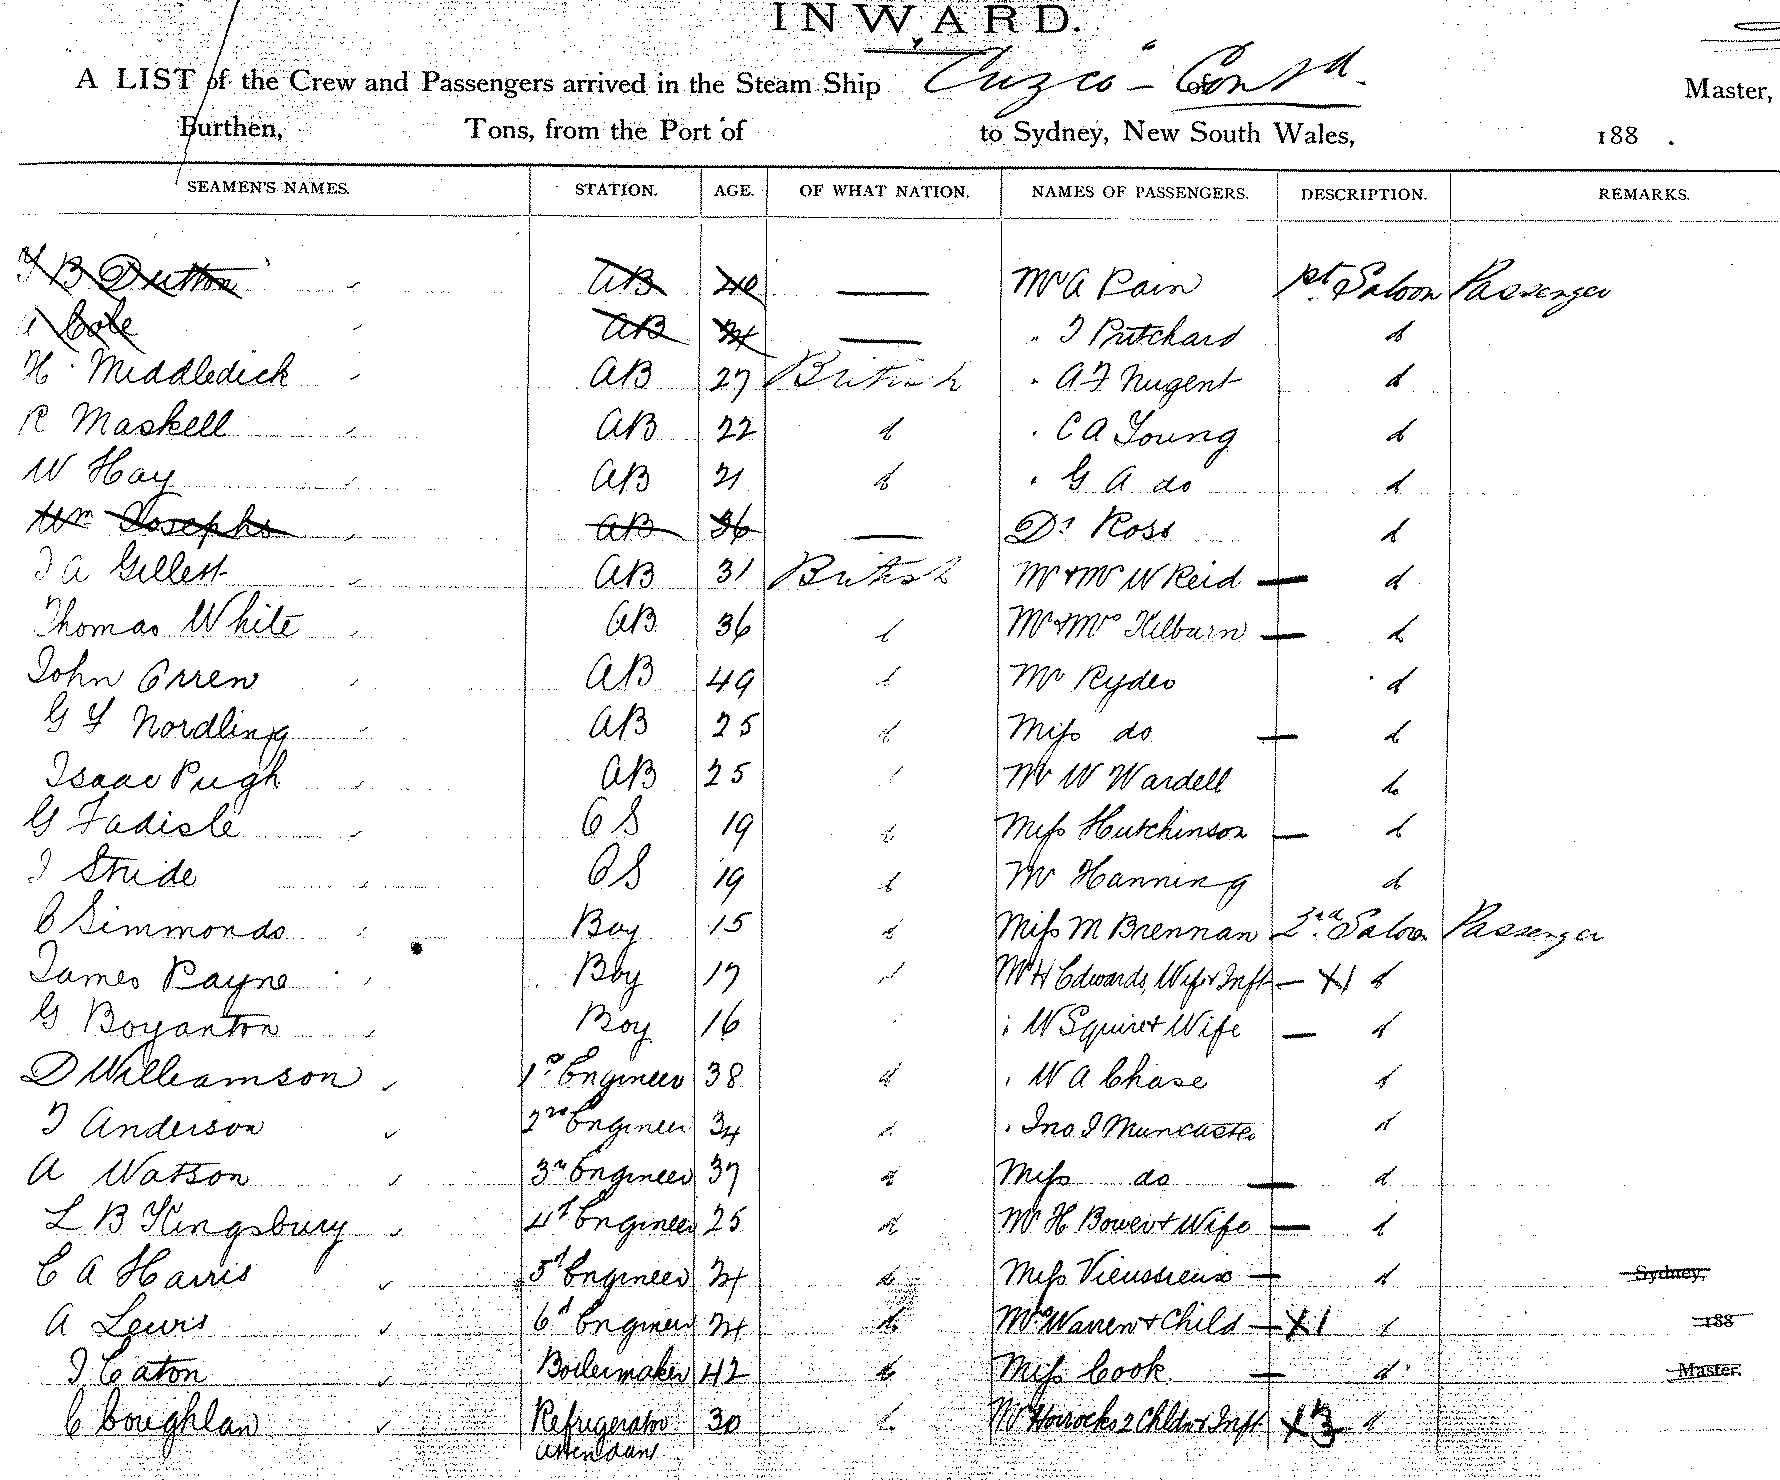 INWARD.
A LIST of the Crew and Passengers arrived in the Steam Ship "Cuzco" - Contd. Master,
Burthen, Tons, from the Port of to Sydney, New South Wales, 188 .
SEAMEN'S NAMES. STATION. AGE. OF WHAT NATION. NAMES OF PASSENGERS. DESCRIPTION. REMARKS.
B Dutton AB — Mr A Pain 1st Saloon Passenger
Cole AB 24 — " J Pritchard d
H Middledick AB 27 British " A F Nugent d
R Maskell AB 22 d " C A Young d
W Hay AB 21 d " G A do d
Wm Josephs AB 36 — Dr Ross d
J A Gillest AB 31 British Mr & Mrs W Reid — d
Thomas White AB 36 d Mr & Mrs Kilburn — d
John Orren AB 49 d Mr Ryder d
G F Nordling AB 25 d Miss do — d
Isaac Pugh AB 25 Mr W Wardell do
G Fadisle OS 19 d Miss Hutchinson — d
J Stride OS 19 d Mr Hanning d
C Simmonds Boy 15 d Miss M Brennan 2nd Saloon Passenger
James Payne Boy 17 Mr H Edwards, Wife & Inft — X1 d
G Boyanton Boy 16 " W Squire & Wife — d
D Williamson 1st Engineer 38 d " W A Chase d
J Anderson 2nd Engineer 34 d " Jno J Muncaster d
A Watson 3rd Engineer 37 d Miss do — d
L B Kingsbury 4th Engineer 25 d Mr H Bower & Wife — d
C A Harris 5th Engineer 24 d Miss Vieusseux — d Sydney,
A Lewis 6th Engineer 24 d Mrs Warren & Child — X1 d 188
J Eaton Boilermaker 42 d Miss Cook — d Master.
C Coughlan Refrigerator 30 d Mr Horrocks 2 Chldn & Inft X3 d
attendant